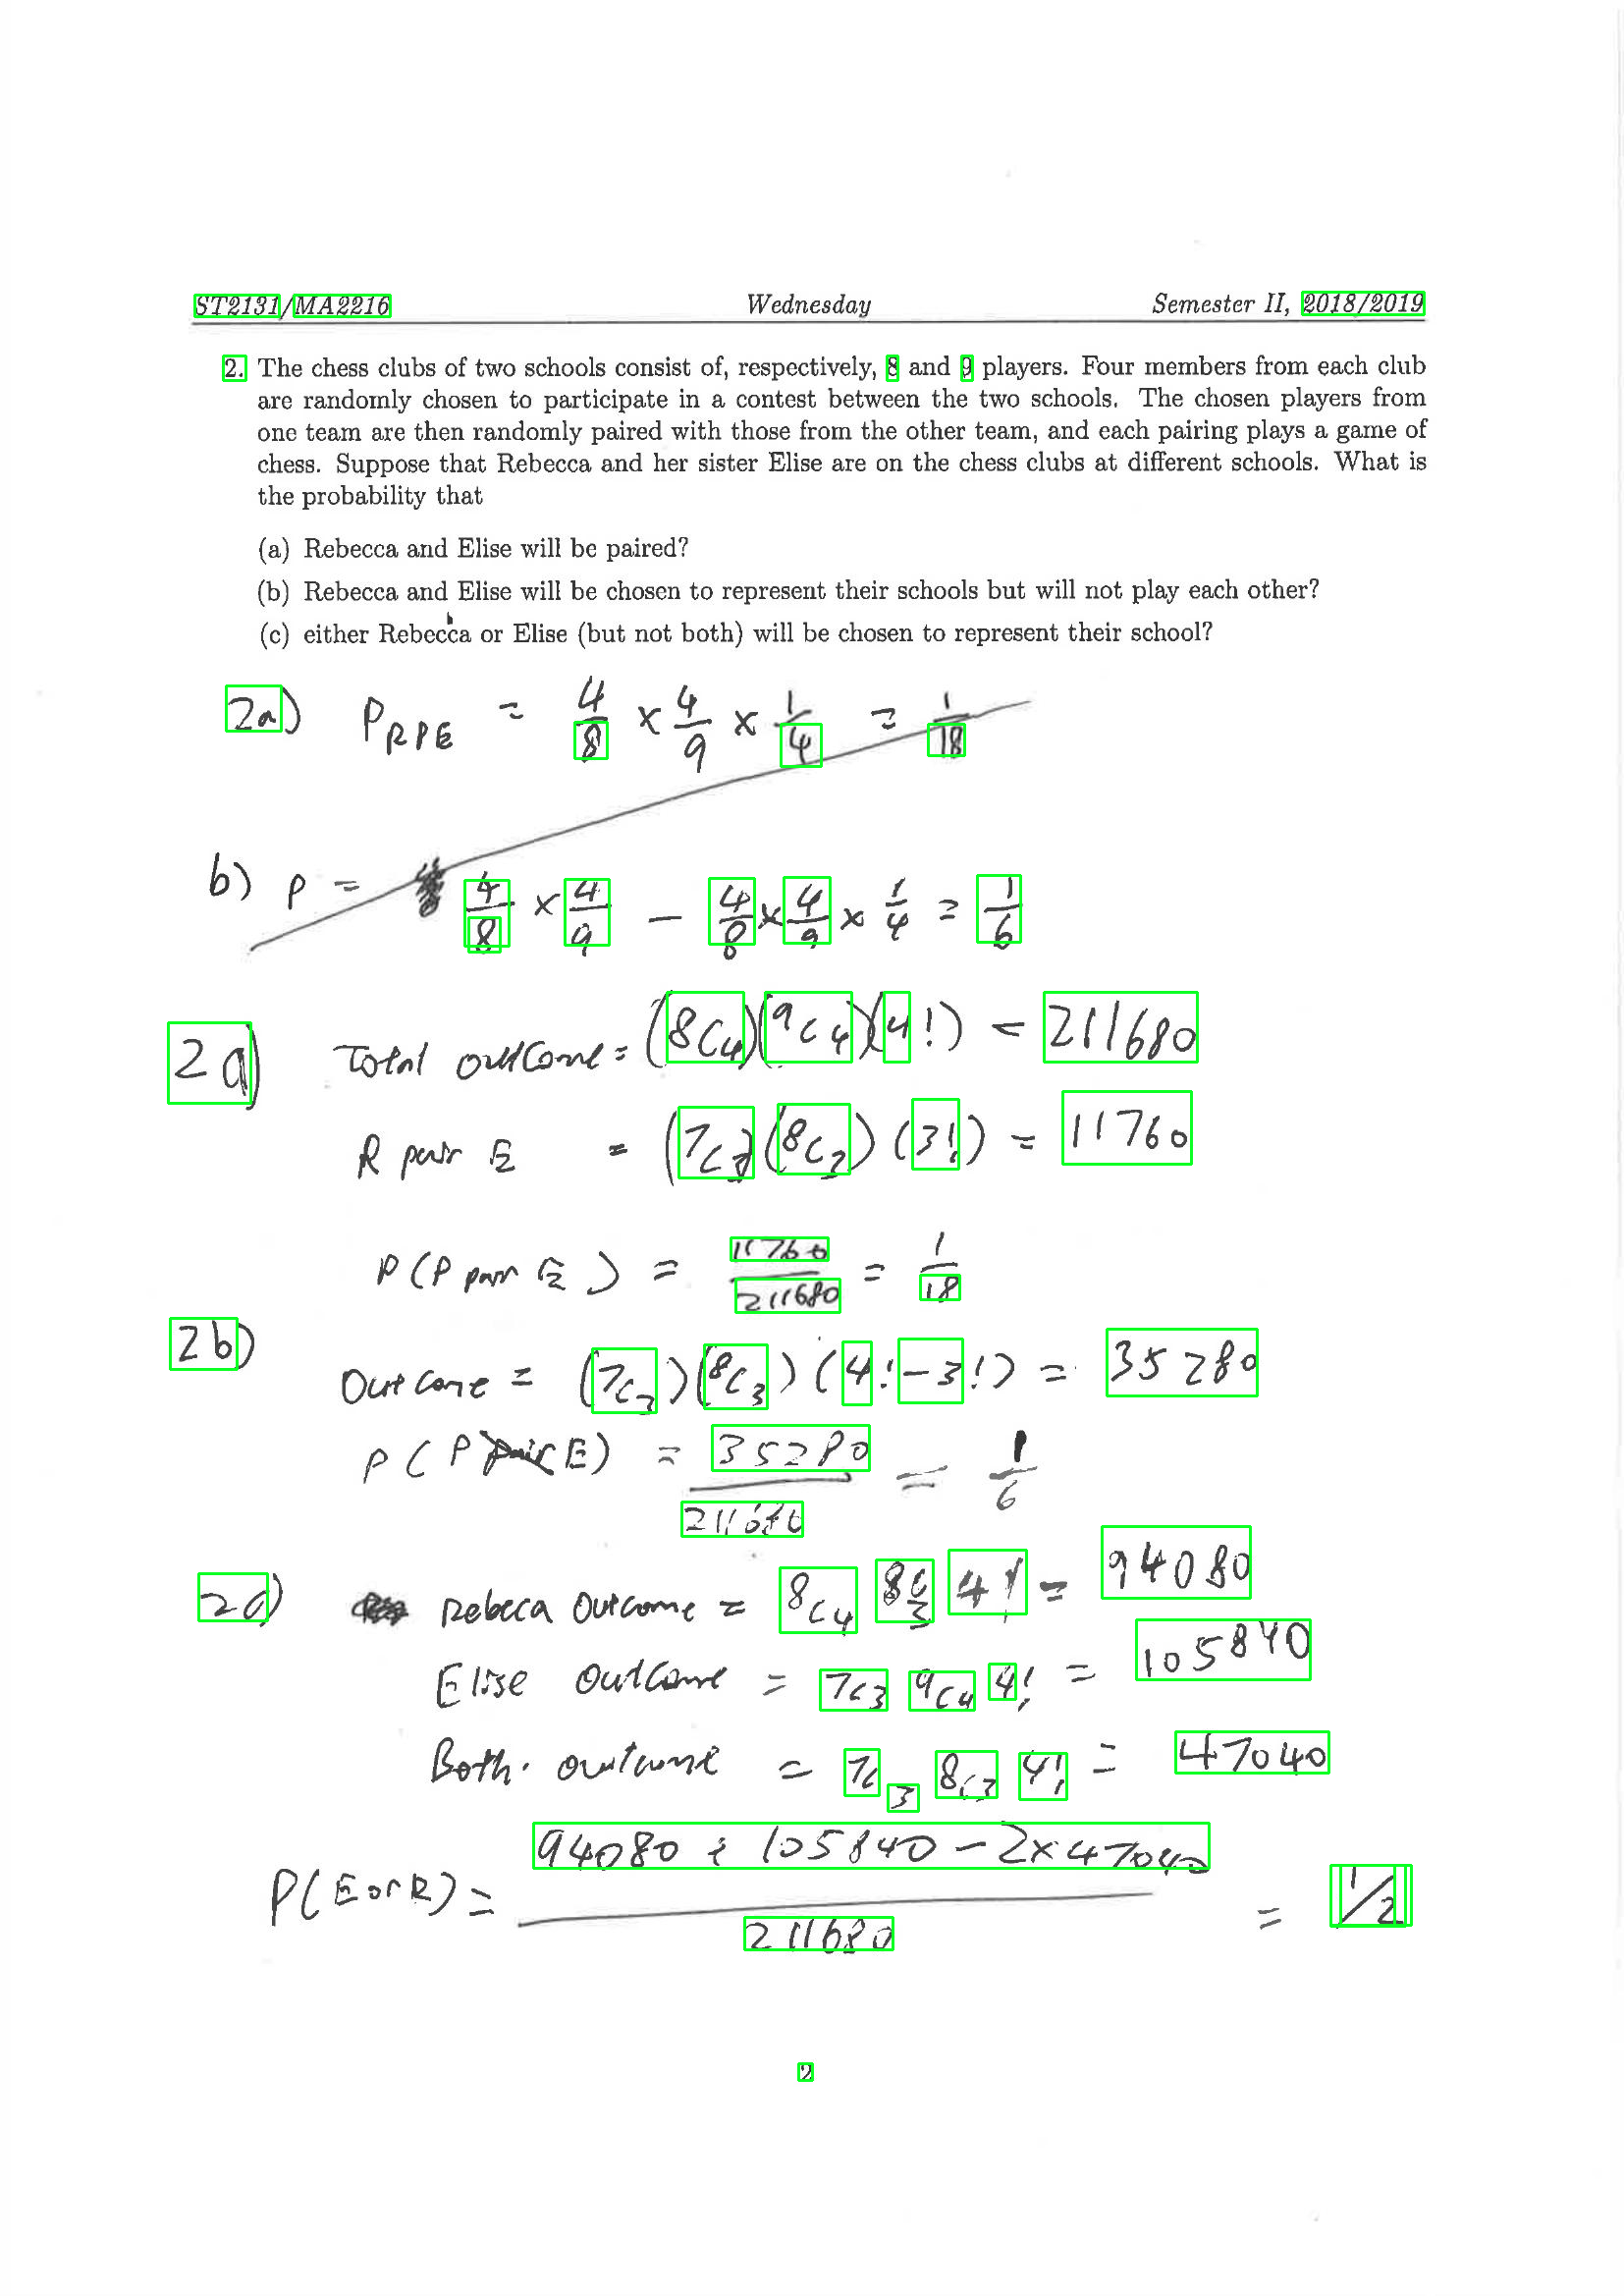 ST2131/MA2216 Wednesday Semester II, 2018/2019
2. The chess clubs of two schools consist of, respectively, 8 and 9 players. Four members from each club
are randomly chosen to participate in a contest between the two schools. The chosen players from
one team are then randomly paired with those from the other team, and each pairing plays a game of
chess. Suppose that Rebecca and her sister Elise are on the chess clubs at different schools. What is
the probability that
(a) Rebecca and Elise will be paired?
(b) Rebecca and Elise will be chosen to represent their schools but will not play each other?
(c) either Rebecca or Elise (but not both) will be chosen to represent their school?
2a) P RPE = 4/8 × 4/9 × 1/4 = 1/18
b) P = 4/8 × 4/9 - 4/8 × 4/9 × 1/4 = 1/6
2a) Total outcome = (8C4)(9C4)(4!) = 211680
R pair E = (7C3)(8C3)(3!) = 11760
P(P pair E) = 11760/211680 = 1/18
2b) Outcome = (7C3)(8C3)(4!-3!) = 35280
P(P pair E) = 35280/211680 = 1/6
2c) Rebeca Outcome = 8C4 8C3 4! = 94080
Elise Outcome = 7C3 9C4 4! = 105840
Both. outcome = 7C3 8C3 4! = 47040
P(E or R) = 94080 + 105840 - 2×47040 / 211680 = 1/2
2